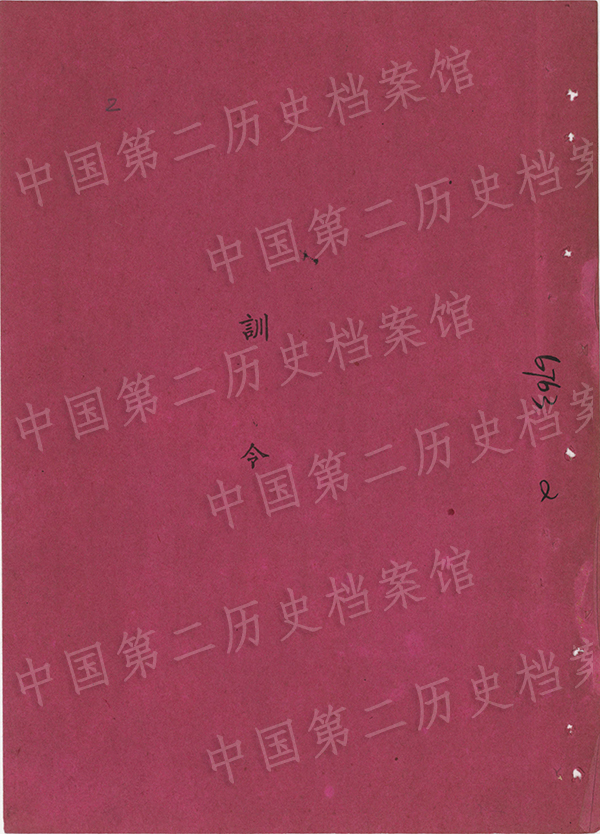 2
訓令
6763
2
中国第二历史档案馆
中国第二历史档案
中国第二历史档案馆
中国第二历史档案
中国第二历史档案馆
中国第二历史档案